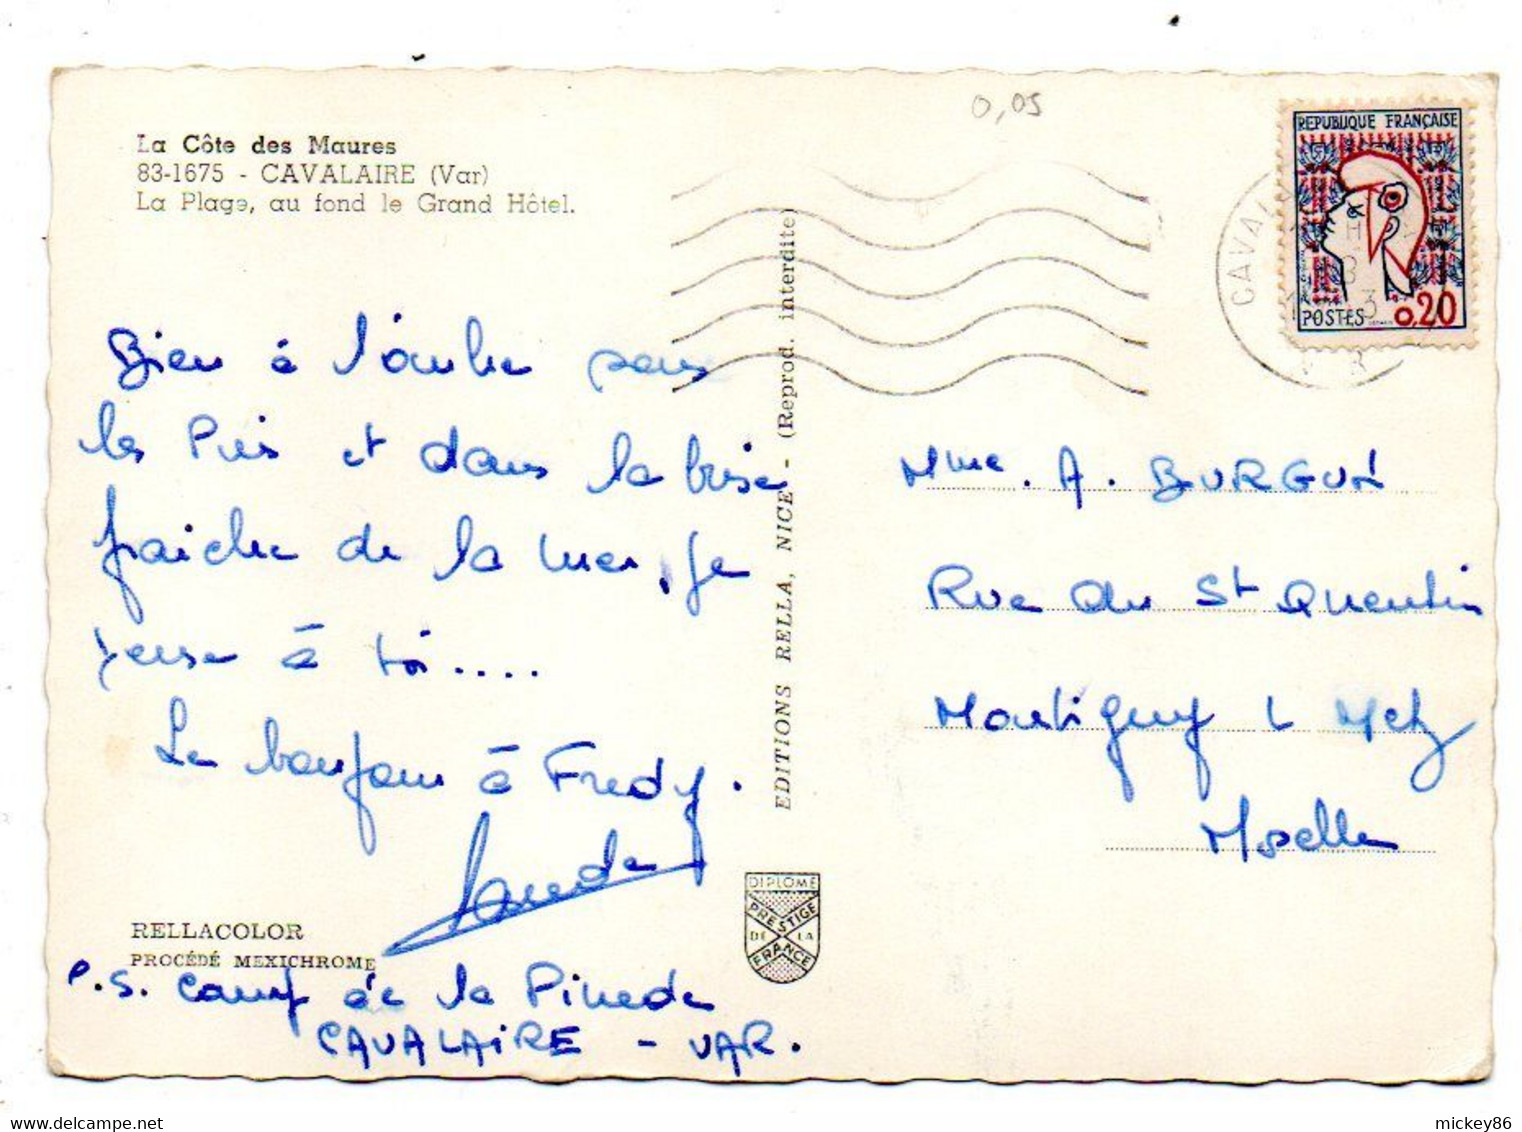 0,05
La Côte des Maures
83-1675 - CAVALAIRE (Var)
La Plage, au fond le Grand Hôtel.
REPUBLIQUE FRANÇAISE
POSTES 0,20
CAVAL
Bien à l'ombre sous
les Pins et dans la brise
fraiche de la mer, je
pense à toi....
Le bonjour à Fredy.
P.S. Camp de la Pinede
CAVALAIRE - VAR.
RELLACOLOR
PROCÉDÉ MEXICHROME
EDITIONS RELLA, NICE - (Reprod. interdite)
DIPLOME
PRESTIGE
DE LA
FRANCE
Mme. A. BURGUN
Rue du St Quentin
Montigny L Metz
Moselle
mickey86